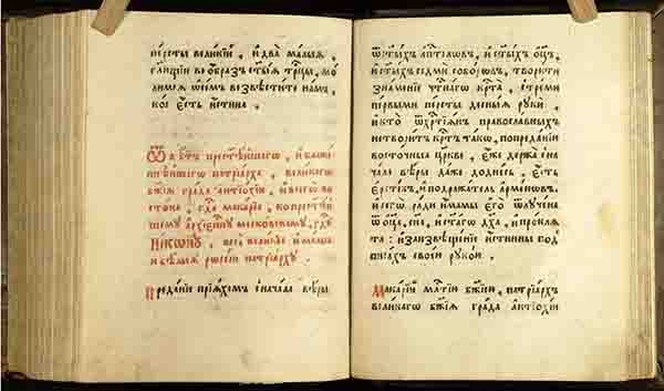 персты великїи , и два малыя ,
сꙋщїи во ѻбразъ ст҃ыя трⷪ҇цы , мо
лимся ѡ семъ возвѣстите намъ ,
коѧ есть истина .
ѿвѣтъ прест҃ѣишаго , и блаже
ннѣишаго патрїарха , великаго
бж҃їя града антїохїи , и всего во
стока , гдⷭ҇на макарїѧ , ко прест҃ѣи
шему архїепⷭ҇пꙋ московскому , гдⷭ҇нꙋ
никонꙋ , всея великїя и малыя
и бѣлыя росїи патрїархꙋ .
Преданїе прїяхомъ сначала вѣры
ѿ ст҃ыхъ апⷭ҇тлѡвъ , и ст҃ыхъ ѻц҃ъ ,
и ст҃ыхъ седми соборѡвъ , творити
знаменїе чтⷭ҇наго крⷭ҇та , с треми
первыми персты десныя рꙋки ,
и кто ѿ хрⷭ҇тїянъ православныхъ
не творитъ крⷭ҇тъ тако , по преданїи
восточныя цр҃кве , еже держа сна
чала вѣры даже до днесь , есть
еретикъ , и подражатель арменѡвъ .
и сего ради имамы его ѿлꙋчена
ѿ ѻц҃а , сн҃а , и ст҃аго дх҃а , и проклѧ
та : извѣщенїе истинны под
писахъ своею рꙋкою .
Макарїи млⷭ҇тїю бж҃їею , патрїархъ
великаго бж҃їя града антїохїи